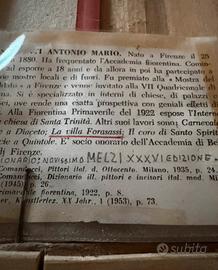 .I ANTONIO MARIO. Nato a Firenze il 25
1880. Ha frequentato l'Accademia fiorentina. Comin-
esporre a 18 anni e da allora in poi ha partecipato
mostre locali e di fuori. Fu premiato alla « Mostra del
a Firenze e venne invitato alla VII Quadriennale di
Si è specializzato in interni di chiese, di palazzi
ove rende una esatta prospettiva con geniali effetti di
Alla Fiorentina Primaverile del 1922 espose l'Inter-
chiesa di Santa Trinità. Altri suoi lavori sono: Carnevale
a Dioceto; La villa Forasassi; Il coro di Santo Spirito
a Quintole. E' socio onorario dell'Accademia di Be
di Firenze.
DIONARIO: NOVISSIMO MELZI XXXVI EDIZIONE.
Comanducci, Pittori ital. d. Ottocento. Milano, 1935, p. 24.
Comanducci, Dizionario ill. pittori e incisori ital. mod. Mi
(1945) p. 26.
primaverile fiorentina, 1922, p. 8.
Künstlerlex. XX Jahr., I (1953), p. 73.
subito.it